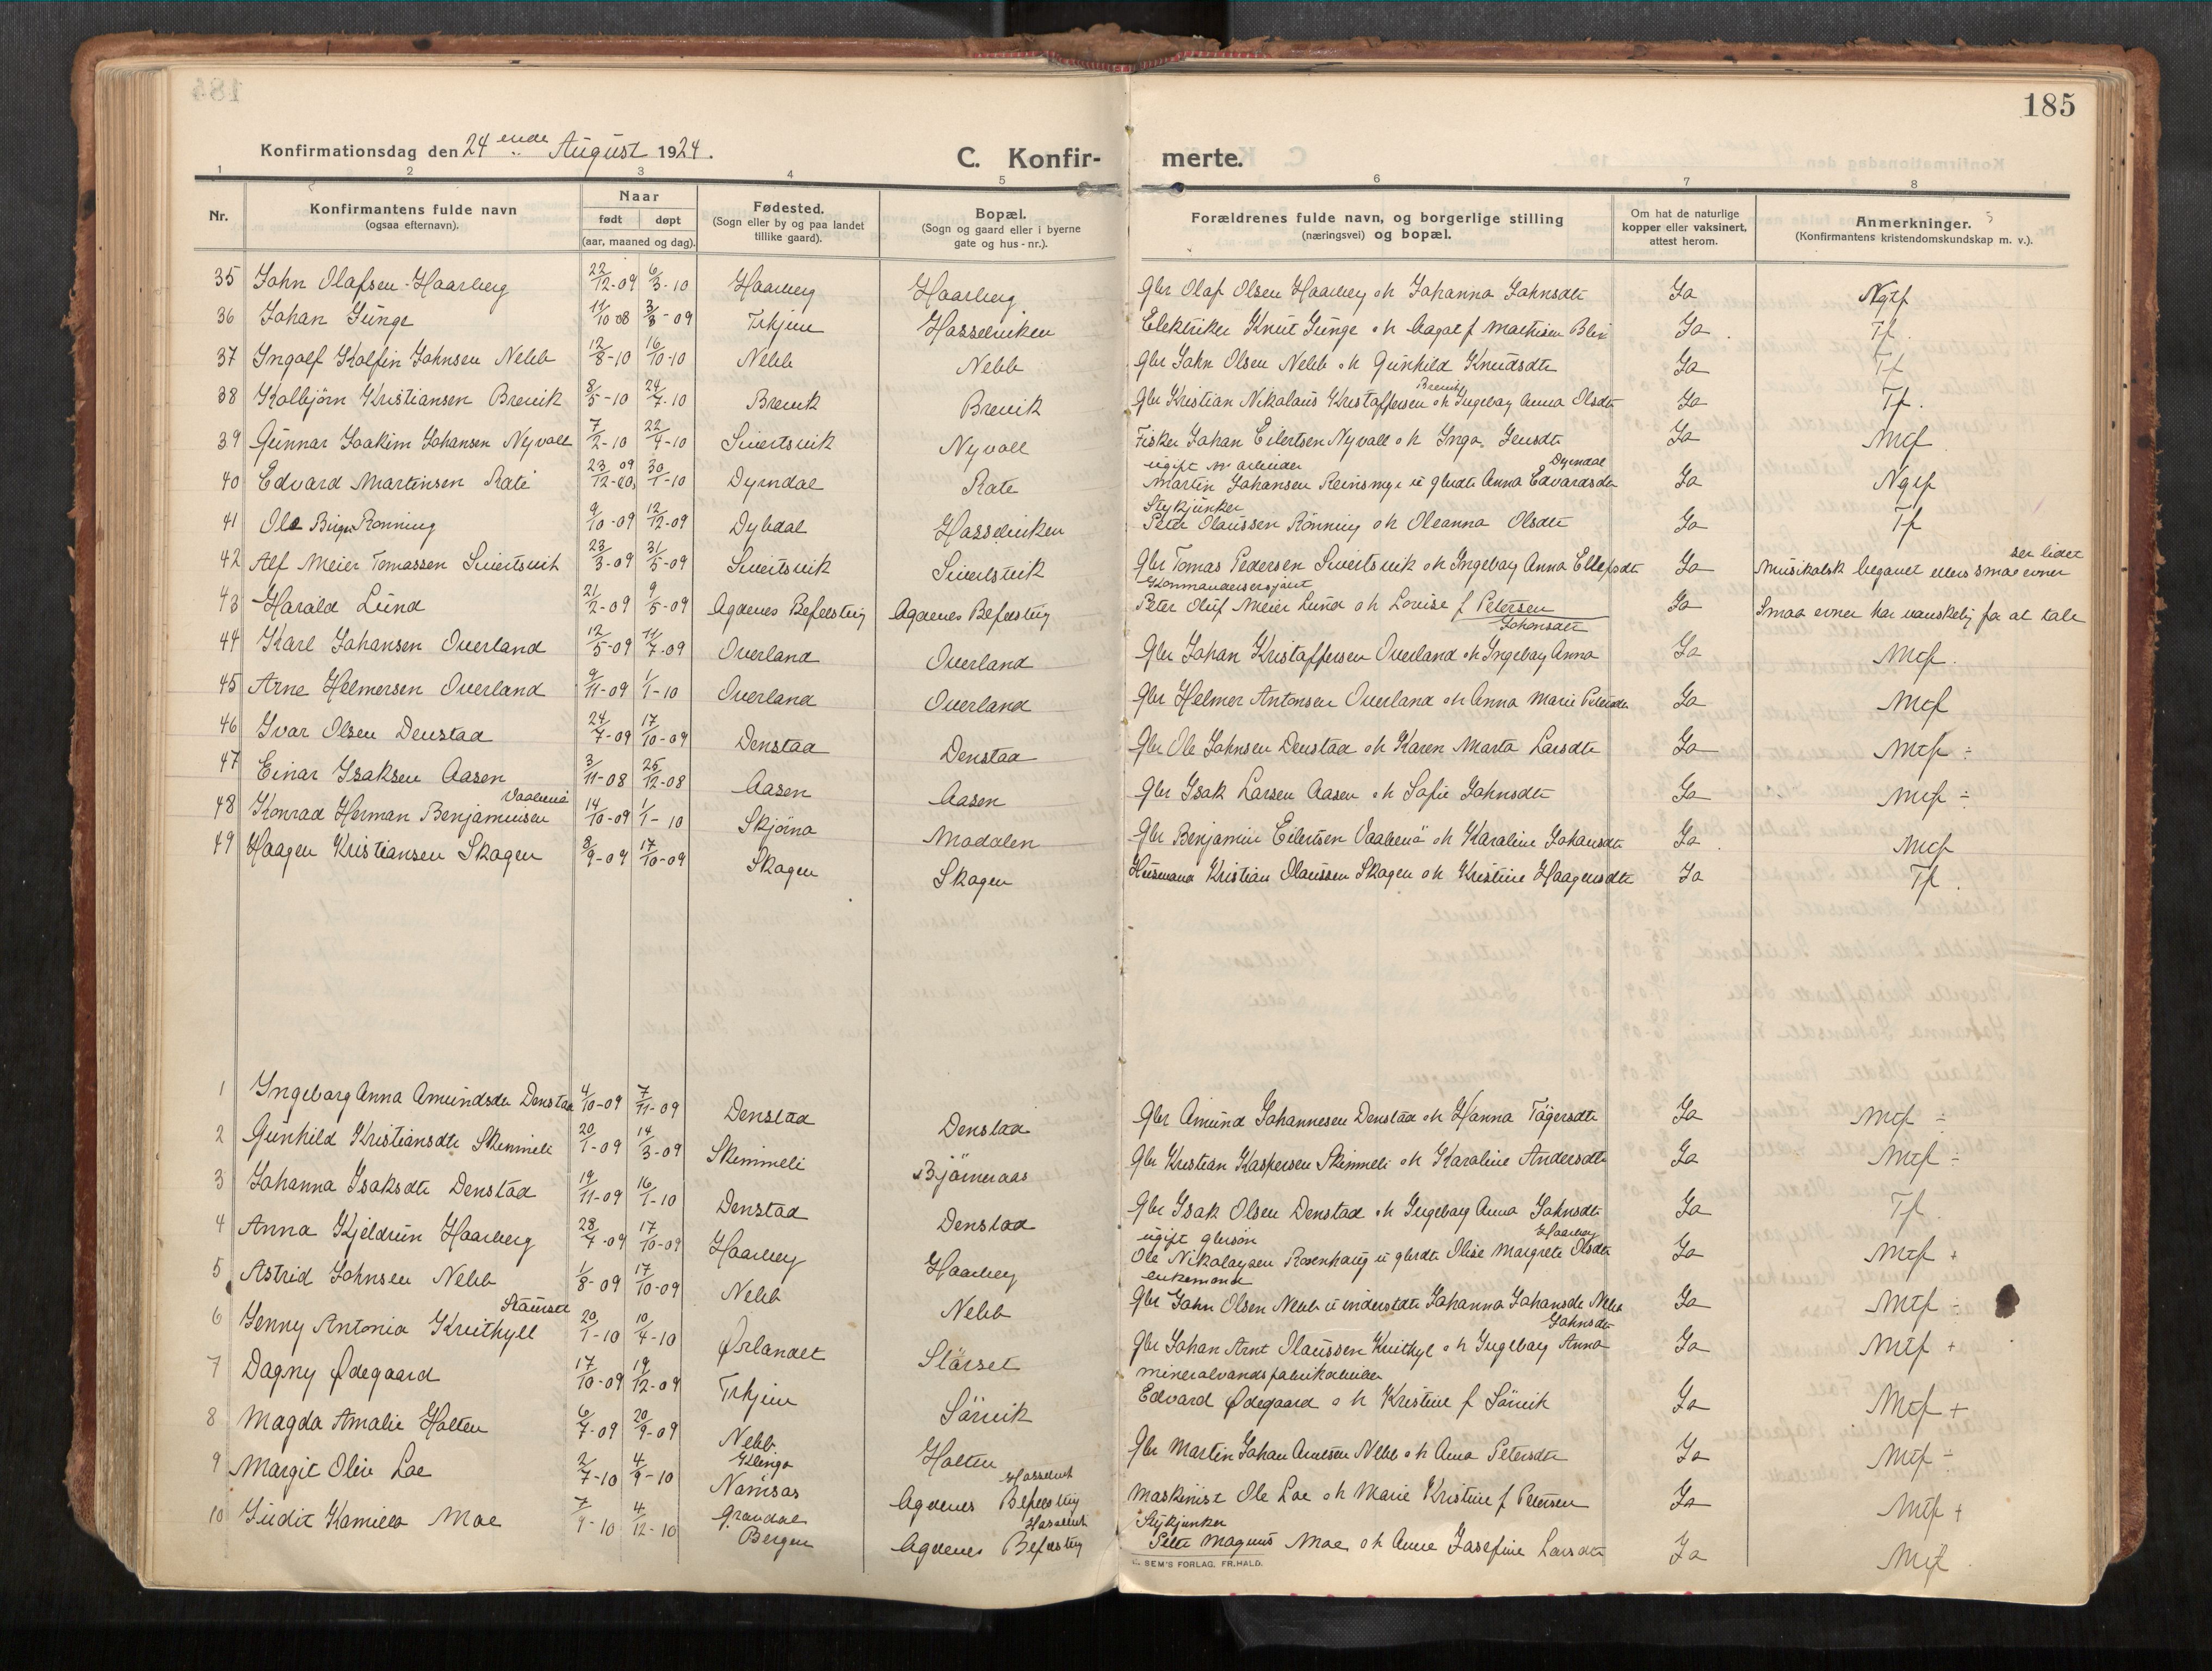 185
Konfirmationsdag den 24 ende August 1924.
C. Konfir- merte.
1 2 3 4 5 6 7 8
Nr.
Konfirmantens fulde navn
(ogsaa efternavn).
Naar
født døpt
(aar, maaned og dag).
Fødested.
(Sogn eller by og paa landet
tillike gaard).
Bopæl.
(Sogn og gaard eller i byerne
gate og hus-nr.).
Forældrenes fulde navn, og borgerlige stilling
(næringsvei) og bopæl.
Om hat de naturlige
kopper eller vaksinert,
attest herom.
Anmerkninger.
(Konfirmantens kristendomskundskap m. v.).
35 John Olafsen Haarberg 22/12-09 6/3-10 Haarberg Haarberg Gbr Olaf Olsen Haarberg o h Johanna Johnsdtr Ja
36 Johan Junge 11/10-08 3/3-09 Trhjem Hasselviken Elektriker Knut Junge o h Aagot f Mathisen Ja Tf.
37 Ingolf Kolfin Johnsen Nebb 12/8-10 16/10-10 Nebb Nebb Gbr John Olsen Nebb o h Gunhild Knudsdtr Ja Tf
38 Kolbjörn Kristiansen Brevik 8/5-10 24/7-10 Brevik Brevik Gbr Kristian Nikolaus Kristoffersen Brevik o h Ingebog Anna Olsdtr Ja Tf.
39 Gunnar Joakim Johansen Nyvoll 7/2-10 22/4-10 Sivertsvik Nyvoll Fisker Johan Eilertsen Nyvoll o h Inga Jensdtr Ja Mtf
ugift arbeider Dyrndal
40 Edvard Martinsen Rate 23/12-09 30/1-10 Dyrndal Rate Martin Johansen Reinsmyr u gbrdtr Anna Edvardsdtr Ja
Stykjunker
41 Ole Birger Rönning 9/10-09 12/12-09 Dybdal Hasselviken Peter Olaussen Rönning o h Oleanna Olsdtr Ja Tf
42 Alf Meier Tomassen Sivertsvik 23/3-09 31/5-09 Sivertsvik Sivertsvik Gbr Tomas Pedersen Sivertsvik o h Ingebog Anna Ellefsdtr Ja Musikalsk begavet ellers smaa evner ser lidet
Kommandersersjant
43 Harald Lund 21/2-09 9/5-09 Agdenes Befæstnig Agdenes Befæstnig Peter Oluf Meier Lund o h Lovise f Petersen Ja Smaa evner har vanskelig for at tale
Johansdtr
44 Karl Johansen Overland 12/5-09 11/7-09 Overland Overland Gbr Johan Kristoffersen Overland o h Ingebog Anna Ja Mtf.
45 Arne Helmersen Overland 9/11-09 1/1-10 Overland Overland Gbr Helmer Antonsen Overland o h Anna Marie Petersdtr Ja Mtf
46 Ivar Olsen Denstad 24/7-09 17/10-09 Denstad Denstad Gbr Ole Johnsen Denstad o h Karen Marta Larsdtr Ja Mtf ÷
47 Einar Isaksen Aasen 3/11-08 25/12-08 Aasen Aasen Gbr Isak Larsen Aasen o h Sofie Johnsdtr Ja Mtf ÷
48 Konrad Herman Benjaminsen Vaabenö 14/10-09 1/1-10 Skjörna Modalen Gbr Benjamin Eilertsen Vaabenö o h Karoline Johansdtr Ja Mtf
49 Haagen Kristiansen Skagen 3/9-09 17/10-09 Skagen Skagen Husmand Kristian Olaussen Skagen o h Kristine Haagensdtr Ja Tf.
1 Ingeborg Anna Amundsdtr Denstad 4/10-09 7/11-09 Denstad Denstad Gbr Amund Johannesen Denstad o h Hanna Tögersdtr Ja Mtf ÷
2 Gunhild Kristiansdtr Skimmeli 20/1-09 14/3-09 Skimmeli Björneraas Gbr Kristian Kaspersen Skimmeli o h Karoline Andersdtr Ja Mtf ÷
3 Johanna Isaksdtr Denstad 19/11-09 16/1-10 Denstad Denstad Gbr Isak Olsen Denstad o h Ingebog Anna Johnsdtr Ja Tf.
ugift gbrsön Haarberg
4 Anna Kjeldrun Haarberg 28/7-09 17/10-09 Haarberg Haarberg Ole Nikolaysen Rosenhaug u gbrdtr Olise Margrete Olsdtr Ja Mtf +
enkemand
5 Astrid Johnsen Nebb 1/8-09 17/10-09 Nebb Nebb Gbr John Olsen Nebb u inderstdtr Johanna Johansdtr Nebb Ja Mtf ÷
Johnsdtr
6 Jenny Antonia Kvithyll Störset 20/1-10 10/4-10 Ørlandet Störset Gbr Johan Arnt Olaussen Kvithyl o h Ingebog Anna Ja Mtf +
mineralvandsfabrikarbeider
7 Dagny Ødegaard 17/10-09 19/12-09 Trhjem Sörvik Edvard Ødegaard o h Kristine f Sörvik Ja Mtf +
8 Magda Amalie Holten 6/7-09 20/9-09 Nebb Holten Gbr Martin Johan Arntsen Nebb o h Ana Petersdtr Ja Mtf ÷
9 Margit Oliv Loe 2/7-10 4/9-10 Klinga Namsos Hasselvik Agdenes Befæstnig Maskinist Ole Loe o h Marie Kristine f Petersen Ja Mtf +
Stykjunker
10 Judit Kamilla Moe 4/12-10 Bergen Hasselvik Agdenes Befæstnig Peter Magnus Moe o h Anne Josefine Larsdtr Ja Mtf.
SEM'S FORLAG. FR.HALD.